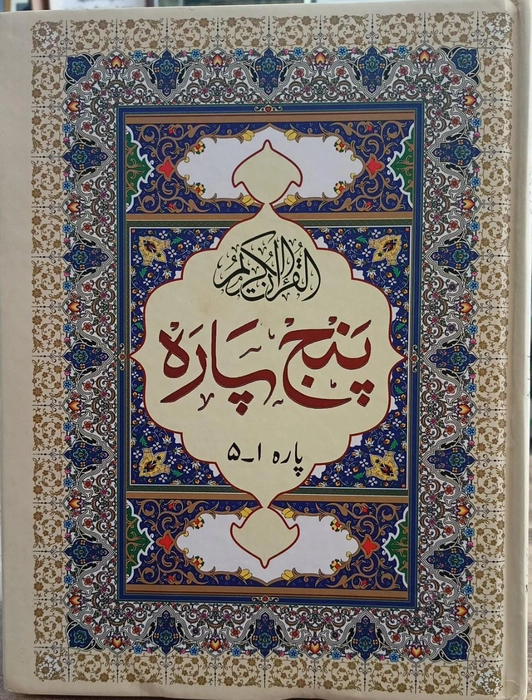 القرآن الكريم
پَنج پَاره
پاره ۱-۵